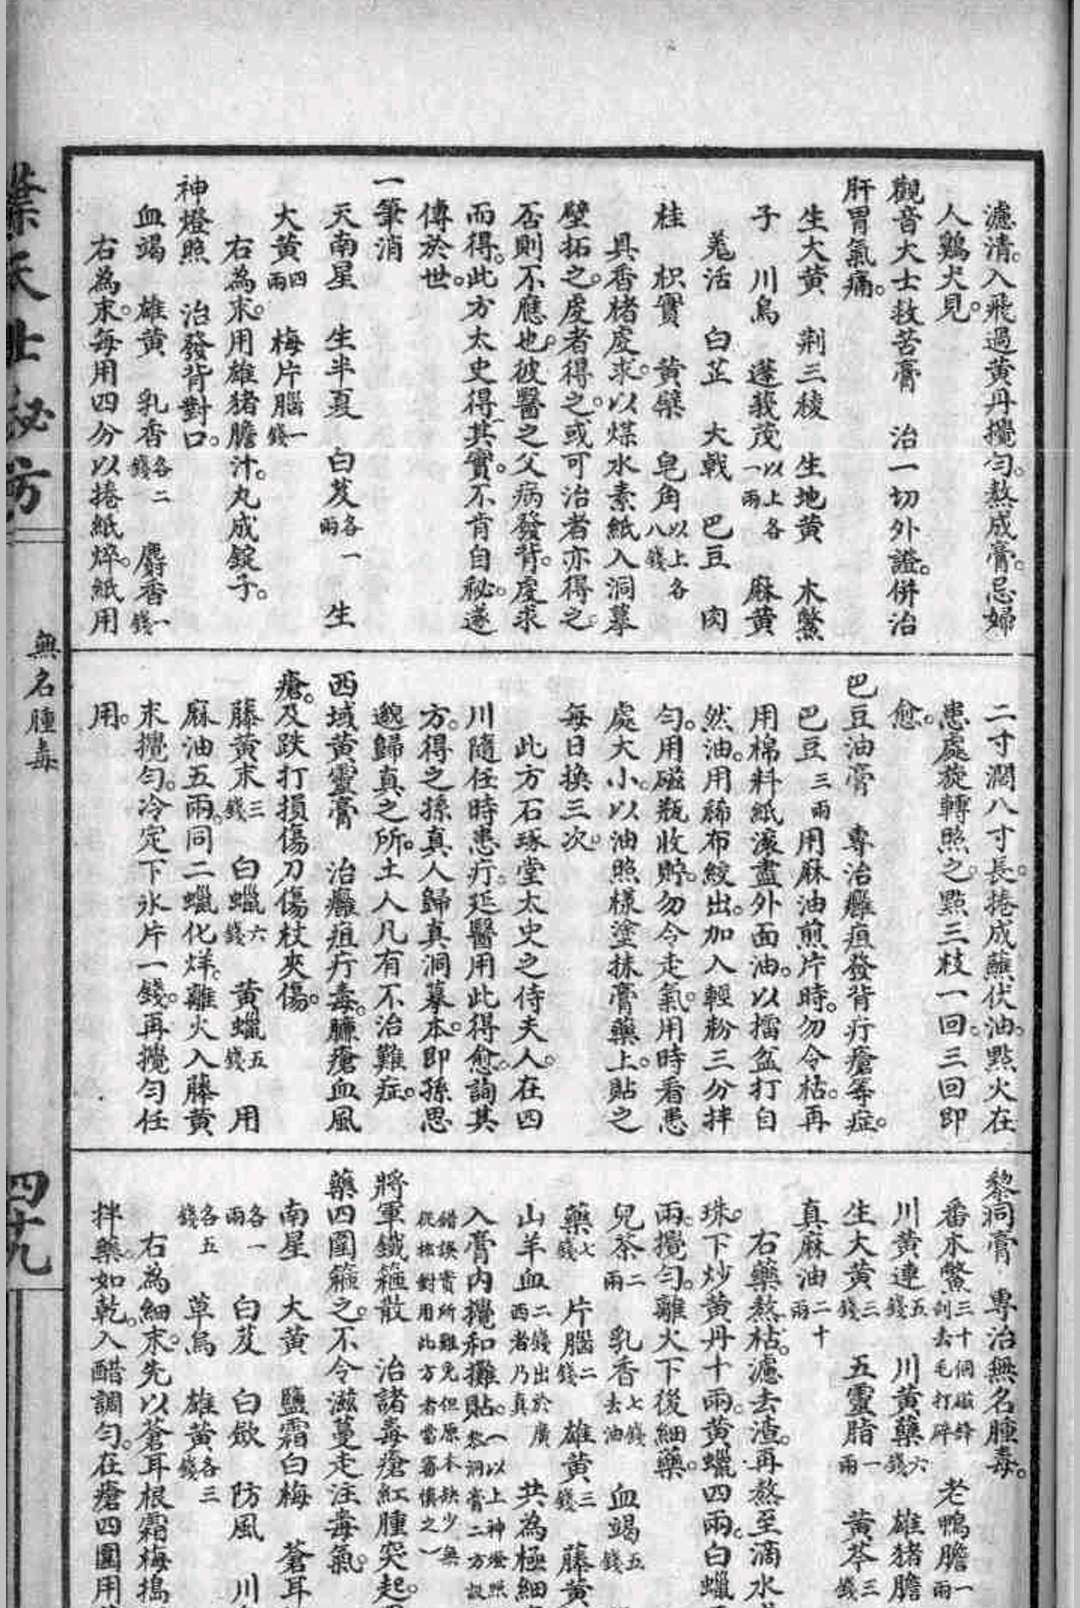 濾清。入飛過黃丹攪勻。熬成膏。忌婦
人鷄犬見。
觀音大士救苦膏 治一切外證。併治
肝胃氣痛。
生大黃 荆三稜 生地黃 木鱉
子 川烏 蓬莪茂以上各一兩 麻黃
羗活 白芷 大戟 巴豆 肉
桂 枳實 黃蘗 皂角以上各八錢
具香楮虔求。以煤水素紙入洞摹
壁拓之。虔者得之。或可治者亦得之。
否則不應也。彼醫之父病發背。虔求
而得。此方太史得其實。不肯自秘。遂
傳於世。
一筆消
天南星 生半夏 白芨各一兩 生
大黃四兩 梅片腦一錢
右為末。用雄猪膽汁。丸成錠子。
神燈照 治發背對口。
血竭 雄黃 乳香各二錢 麝香一錢
右為末。每用四分。以捲紙焠。紙用
二寸濶八寸長。捲成蘸伏油。點火在
患處旋轉照之。點三枝一回。三回即
愈。
巴豆油膏 專治癰疽發背疔瘡等症。
巴豆三兩 用麻油煎片時。勿令枯。再
用棉料紙滾盡外面油。以擂盆打自
然油。用稀布絞出。加入輕粉三分拌
勻。用磁瓶收貯。勿令走氣。用時看患
處大小。以油照樣塗抹膏藥上。貼之
每日換三次。
此方石琢堂太史之侍夫人。在四
川隨任時患疔。延醫用此得愈。詢其
方。得之孫真人歸真洞摹本。即孫思
邈歸真之所。土人凡有不治難症。
西域黃靈膏 治癰疽疔毒。臁瘡血風
瘡。及跌打損傷刀傷杖夾傷。
藤黃末三錢 白蠟六錢 黃蠟五錢 用
麻油五兩。同二蠟化烊。離火入藤黃
末攪勻。冷定下氷片一錢。再攪勻任
用。
黎洞膏 專治無名腫毒。
番木鱉三十個磁鋒刮去毛打碎 老鴨膽一兩
川黃連五錢 川黃蘗六錢 雄猪膽
生大黃三錢 五靈脂一兩 黃芩三錢
真麻油二十兩
右藥熬枯。濾去渣。再熬至滴水
珠。下炒黃丹十兩。黃蠟四兩。白蠟
兩。攪勻。離火下後細藥。
兒茶二兩 乳香七錢去油 血竭五錢
藥七錢 片腦二錢 雄黃三錢 藤黃
山羊血二錢出於廣西者乃真 共為極細
入膏內攪和攤貼。(以上神燈照黎洞膏二方設
錯誤實所難免但原本缺少無從核對用此方者當審慎之)
將軍鐵箍散 治諸毒瘡紅腫突起。
藥四圍箍之。不令滋蔓走注毒氣。
南星 大黃 鹽霜白梅 蒼耳
各一兩 白芨 白歛 防風 川
各五錢 草烏 雄黃各三錢
右為細末。先以蒼耳根霜梅搗
拌藥。如乾。入醋調勻。在瘡四圍用
葉天士秘方
無名腫毒
四十九